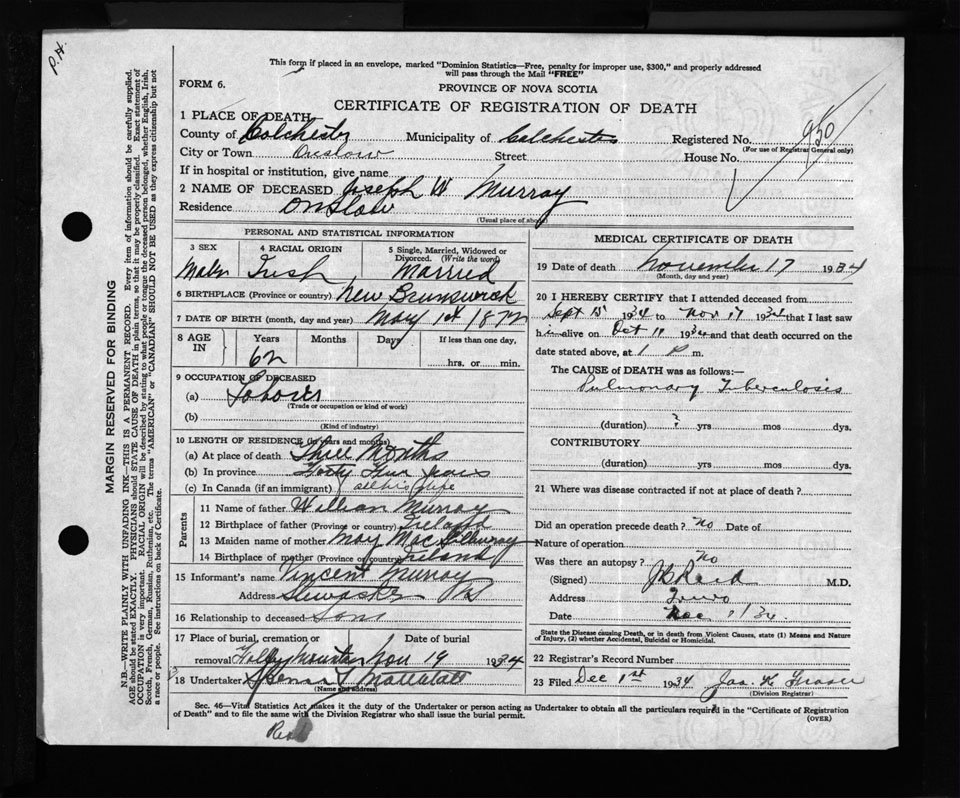 P.H.
This form if placed in an envelope, marked "Dominion Statistics—Free, penalty for improper use, $300," and properly addressed
will pass through the Mail "FREE"
FORM 6.
PROVINCE OF NOVA SCOTIA
CERTIFICATE OF REGISTRATION OF DEATH
1 PLACE OF DEATH
County of Colchester Municipality of Colchester Registered No. 950
(For use of Registrar General only)
City or Town Onslow Street House No.
If in hospital or institution, give name
2 NAME OF DECEASED Joseph W Murray
Residence Onslow
(Usual place of abode)
PERSONAL AND STATISTICAL INFORMATION
3 SEX 4 RACIAL ORIGIN 5 Single, Married, Widowed or Divorced. (Write the word)
Male Irish Married
6 BIRTHPLACE (Province or country) New Brunswick
7 DATE OF BIRTH (month, day and year) May 1st 1872
8 AGE IN Years Months Days If less than one day,
62 hrs. or min.
9 OCCUPATION OF DECEASED
(a) Laborer
(Trade or occupation or kind of work)
(b)
(Kind of industry)
10 LENGTH OF RESIDENCE (in years and months)
(a) At place of death Three Months
(b) In province Forty Four years
(c) In Canada (if an immigrant) all his life
Parents
11 Name of father William Murray
12 Birthplace of father (Province or country) Ireland
13 Maiden name of mother May
14 Birthplace of mother (Province or country) Ireland
15 Informant's name Vincent Murray
Address Stewiacke NS
16 Relationship to deceased Son
17 Place of burial, cremation or removal Date of burial
Nov 19 1934
18 Undertaker
(Name and address)
MEDICAL CERTIFICATE OF DEATH
19 Date of death November 17 1934
(Month, day and year)
20 I HEREBY CERTIFY that I attended deceased from
Sept 15 1934 to Nov 17 1934 that I last saw
him alive on Oct 19 1934 and that death occurred on the
date stated above, at 1 P m.
The CAUSE of DEATH was as follows:—
Pulmonary Tuberculosis
(duration) ? yrs mos dys.
CONTRIBUTORY
(duration) yrs mos dys.
21 Where was disease contracted if not at place of death?
Did an operation precede death? No Date of
Nature of operation
Was there an autopsy? No
(Signed) M.D.
Address Truro
Date
State the Disease causing Death, or in death from Violent Causes, state (1) Means and Nature
of Injury, (2) whether Accidental, Suicidal or Homicidal.
22 Registrar's Record Number
23 Filed Dec 1st 1934 Jas. K Fraser
(Division Registrar)
Sec. 46—Vital Statistics Act makes it the duty of the Undertaker or person acting as Undertaker to obtain all the particulars required in the "Certificate of Registration
of Death" and to file the same with the Division Registrar who shall issue the burial permit.
(OVER)
MARGIN RESERVED FOR BINDING
N.B.—WRITE PLAINLY WITH UNFADING INK—THIS IS A PERMANENT RECORD. Every item of information should be carefully supplied.
AGE should be stated EXACTLY. PHYSICIANS should STATE CAUSE OF DEATH in plain terms, so that it may be properly classified. Exact statement of
OCCUPATION is very important. RACIAL ORIGIN will be described by stating to what people or tongue the deceased person belonged, whether English, Irish,
Scotch, French, German, Russian, Ruthenian, etc. The terms "AMERICAN" or "CANADIAN" SHOULD NOT BE USED as they express citizenship but not
a race or people. See instructions on back of Certificate.